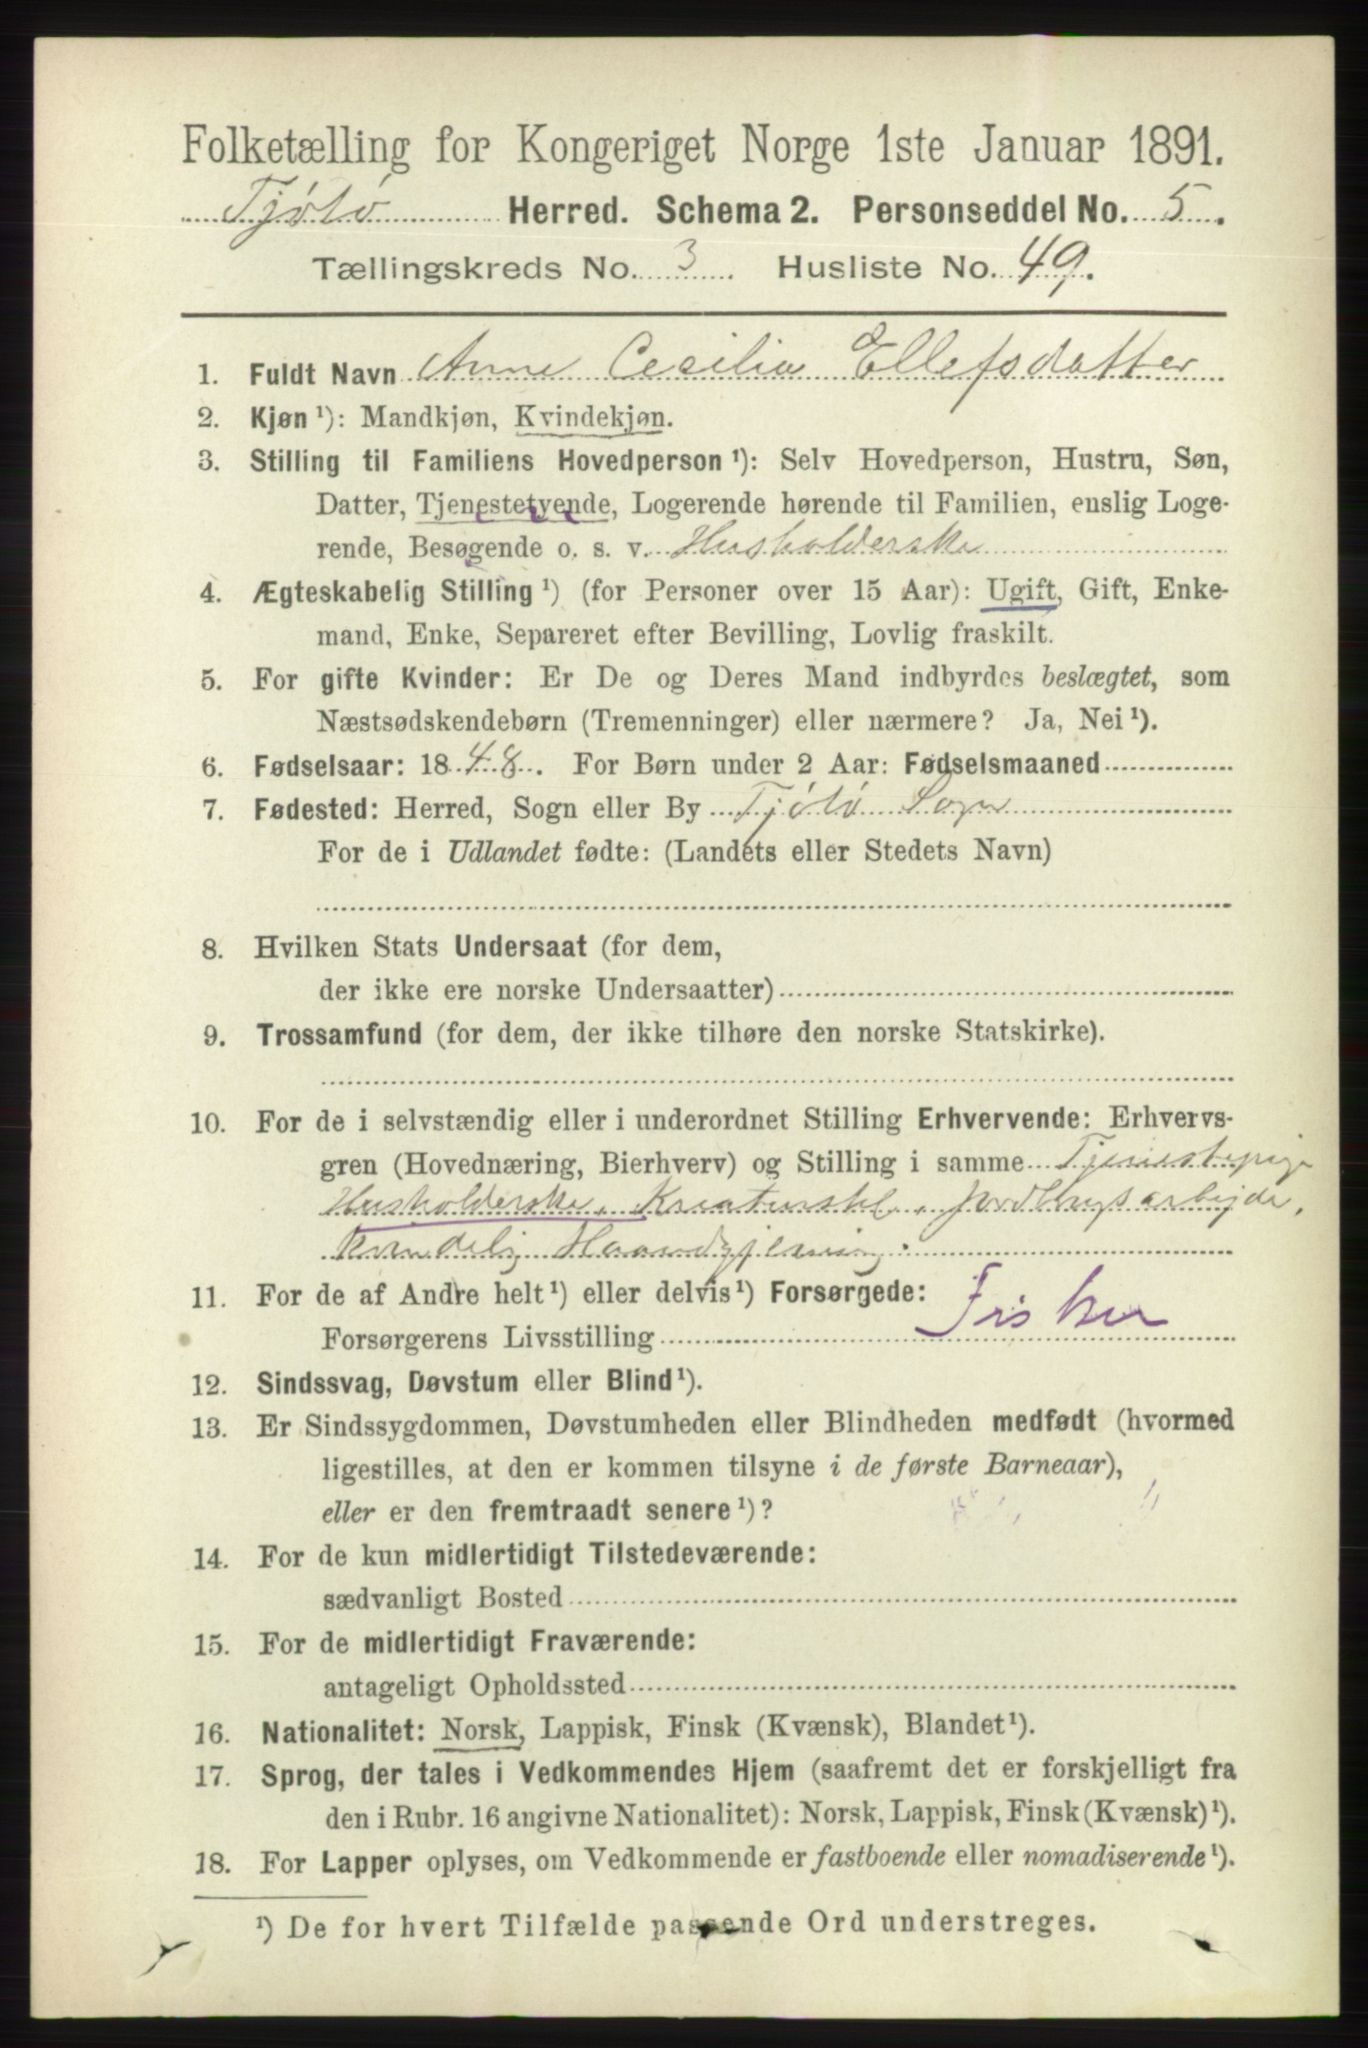 Folketælling for Kongeriget Norge 1ste Januar 1891.
Tjøtø Herred. Schema 2. Personseddel No. 5.
Tællingskreds No. 3. Husliste No. 49.
1. Fuldt Navn Anne Cecilia Ellefsdatter
2. Kjøn ¹): Mandkjøn, Kvindekjøn.
3. Stilling til Familiens Hovedperson ¹): Selv Hovedperson, Hustru, Søn,
Datter, Tjenestetyende, Logerende hørende til Familien, enslig Loge-
rende, Besøgende o. s. v. Husholderske
4. Ægteskabelig Stilling ¹) (for Personer over 15 Aar): Ugift, Gift, Enke-
mand, Enke, Separeret efter Bevilling, Lovlig fraskilt.
5. For gifte Kvinder: Er De og Deres Mand indbyrdes beslægtet, som
Næstsødskendebørn (Tremenninger) eller nærmere? Ja, Nei ¹).
6. Fødselsaar: 1848. For Børn under 2 Aar: Fødselsmaaned
7. Fødested: Herred, Sogn eller By Tjøtø Sogn
For de i Udlandet fødte: (Landets eller Stedets Navn)
8. Hvilken Stats Undersaat (for dem,
der ikke ere norske Undersaatter)
9. Trossamfund (for dem, der ikke tilhøre den norske Statskirke).
10. For de i selvstændig eller i underordnet Stilling Erhvervende: Erhvervs-
gren (Hovednæring, Bierhverv) og Stilling i samme Tjenestepige
Husholderske, Kreaturstel, Jordbrugsarbejde,
Kvindelig Haandgjerning.
11. For de af Andre helt ¹) eller delvis ¹) Forsørgede:
Forsørgerens Livsstilling Fisker
12. Sindssvag, Døvstum eller Blind ¹).
13. Er Sindssygdommen, Døvstumheden eller Blindheden medfødt (hvormed
ligestilles, at den er kommen tilsyne i de første Barneaar),
eller er den fremtraadt senere ¹)?
14. For de kun midlertidigt Tilstedeværende:
sædvanligt Bosted
15. For de midlertidigt Fraværende:
antageligt Opholdssted
16. Nationalitet: Norsk, Lappisk, Finsk (Kvænsk), Blandet ¹).
17. Sprog, der tales i Vedkommendes Hjem (saafremt det er forskjelligt fra
den i Rubr. 16 angivne Nationalitet): Norsk, Lappisk, Finsk (Kvænsk) ¹).
18. For Lapper oplyses, om Vedkommende er fastboende eller nomadiserende ¹).
¹) De for hvert Tilfælde passende Ord understreges.